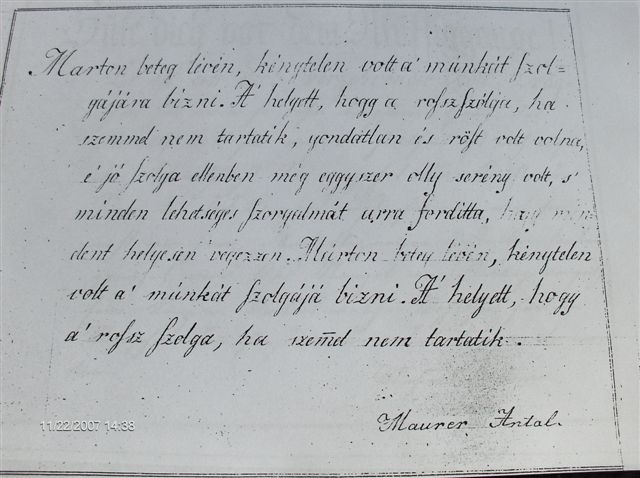 Marton beteg lévén, kénytelen volt a' múnkát szol=
gájára bizni. A' helyett, hogy a rossz szolga, ha
szemmel nem tartatik, gondatlan és röst volt volna,
é jó szolga ellenben még eggyszer olly serény volt, s'
minden lehetséges szorgalmát arra forditta, hogy min
dent helyesen végezzen. Márton beteg lévén, kénytelen
volt a' múnkát szolgájá bizni. A' helyett, hogy
a' rossz szolga, ha szem̅el nem tartatik.
Maurer Antal.
11/22/2007 14:38